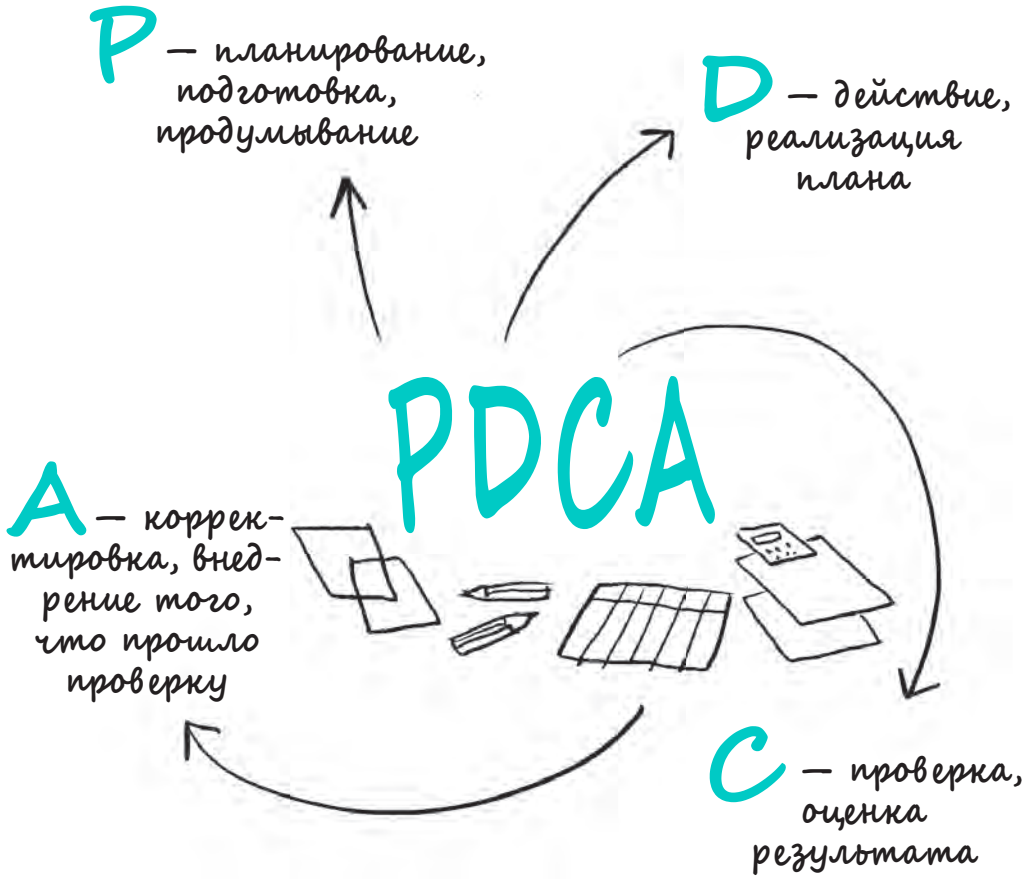 P — планирование,
подготовка,
продумывание
D — действие,
реализация
плана
PDCA
A — коррек-
тировка, внед-
рение того,
что прошло
проверку
C — проверка,
оценка
результата